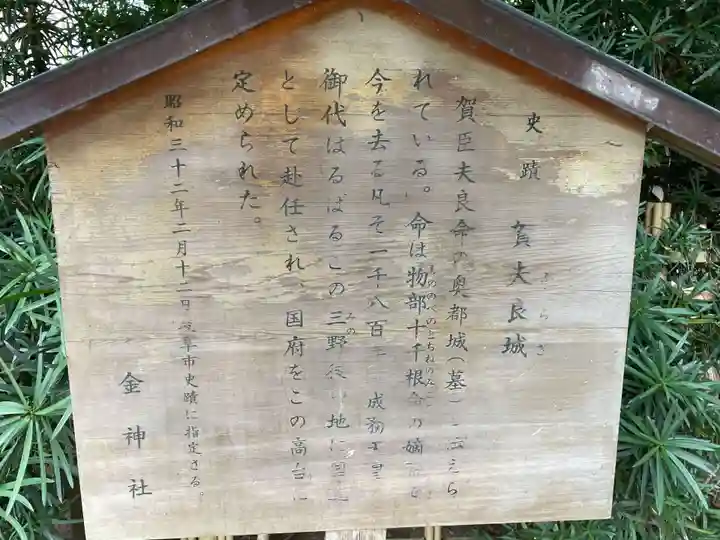 史蹟 賀夫良城
ぶらき
賀臣夫良命の奥都城(墓)と伝えら
れている。命は物部十千根命の嫡
もののべのとちねのみ
今を去る凡そ一千八百 成務天皇
御代はるばるこの三野 地に
みの
として赴任され、国府をこの高台に
定められた。
昭和三十二年二月十二日 岐阜市史蹟に指定さる。
金神社